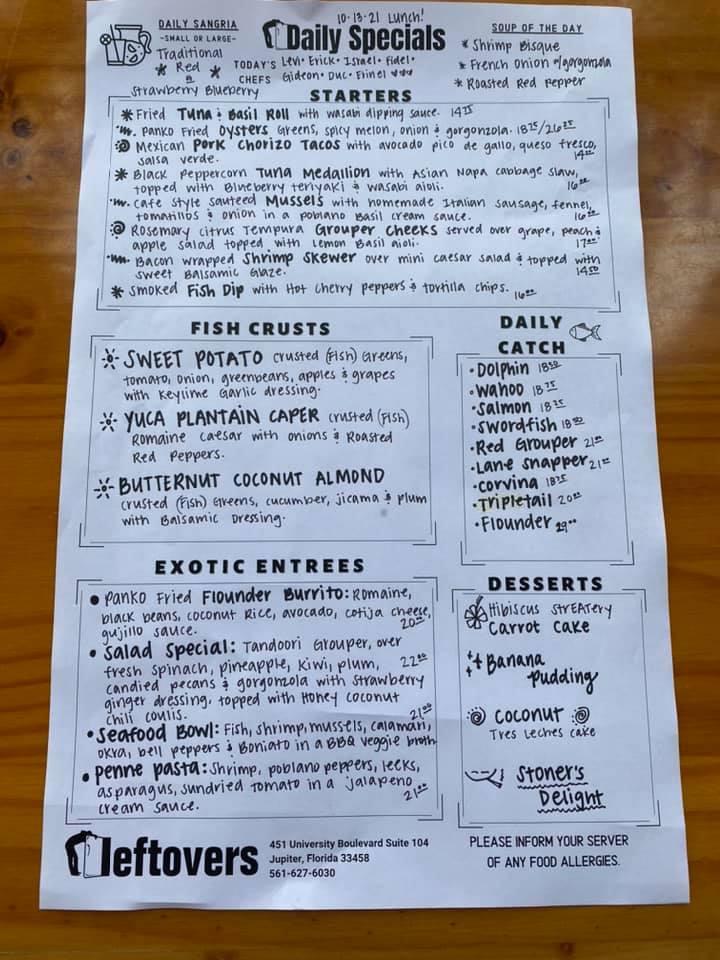 DAILY SANGRIA
-SMALL OR LARGE-
Traditional
* Red *
or
Strawberry Blueberry
10-13-21 Lunch!
Daily Specials
TODAY'S Levi • Erick • Israel • Fidel •
CHEFS Gideon • Duc • Erinel ♥♥♥
SOUP OF THE DAY
* Shrimp Bisque
* French Onion w/gorgonzola
* Roasted Red Pepper
STARTERS
* Fried Tuna & Basil Roll with wasabi dipping sauce. 14.75
Panko Fried Oysters Greens, spicy melon, onion & gorgonzola. 18.75/26.25
Mexican Pork Chorizo Tacos with avocado pico de gallo, queso fresco,
salsa verde. 14.00
* Black Peppercorn Tuna Medallion with Asian Napa cabbage slaw,
topped with Blueberry teriyaki & wasabi aioli. 16.00
Cafe style sauteed Mussels with homemade Italian sausage, fennel,
tomatillos & onion in a poblano Basil cream sauce. 16.00
Rosemary citrus Tempura Grouper Cheeks served over grape, peach &
apple salad topped with Lemon Basil aioli. 17.00
Bacon wrapped Shrimp Skewer over mini caesar salad & topped with
sweet Balsamic Glaze. 14.50
* Smoked Fish Dip with Hot Cherry peppers & tortilla chips. 16.00
FISH CRUSTS
SWEET POTATO crusted (Fish) Greens,
tomato, onion, greenbeans, apples & grapes
with Keylime Garlic dressing.
YUCA PLANTAIN CAPER crusted (Fish)
Romaine Caesar with onions & Roasted
Red Peppers.
BUTTERNUT COCONUT ALMOND
crusted (Fish) Greens, cucumber, jicama & plum
with Balsamic Dressing.
DAILY
CATCH
• Dolphin 18.50
• Wahoo 18.75
• Salmon 18.75
• Swordfish 18.50
• Red Grouper 21.00
• Lane Snapper 21.00
• Corvina 18.75
• Tripletail 20.00
• Flounder 29.00
EXOTIC ENTREES
• Panko Fried Flounder Burrito: Romaine,
black beans, coconut Rice, avocado, cotija cheese,
gujillo sauce. 20.00
• Salad Special: Tandoori Grouper, over
fresh spinach, pineapple, kiwi, plum, 22.00
candied pecans & gorgonzola with strawberry
ginger dressing, topped with Honey coconut
chili coulis. 21.00
• Seafood Bowl: Fish, shrimp, mussels, calamari,
okra, bell peppers & Boniato in a BBQ veggie broth
• Penne Pasta: Shrimp, poblano peppers, leeks,
asparagus, sundried tomato in a jalapeno
cream sauce. 21.00
DESSERTS
Hibiscus StrEatery
Carrot Cake
Banana
Pudding
Coconut
Tres Leches Cake
Stoner's
Delight
leftovers
451 University Boulevard Suite 104
Jupiter, Florida 33458
561-627-6030
PLEASE INFORM YOUR SERVER
OF ANY FOOD ALLERGIES.